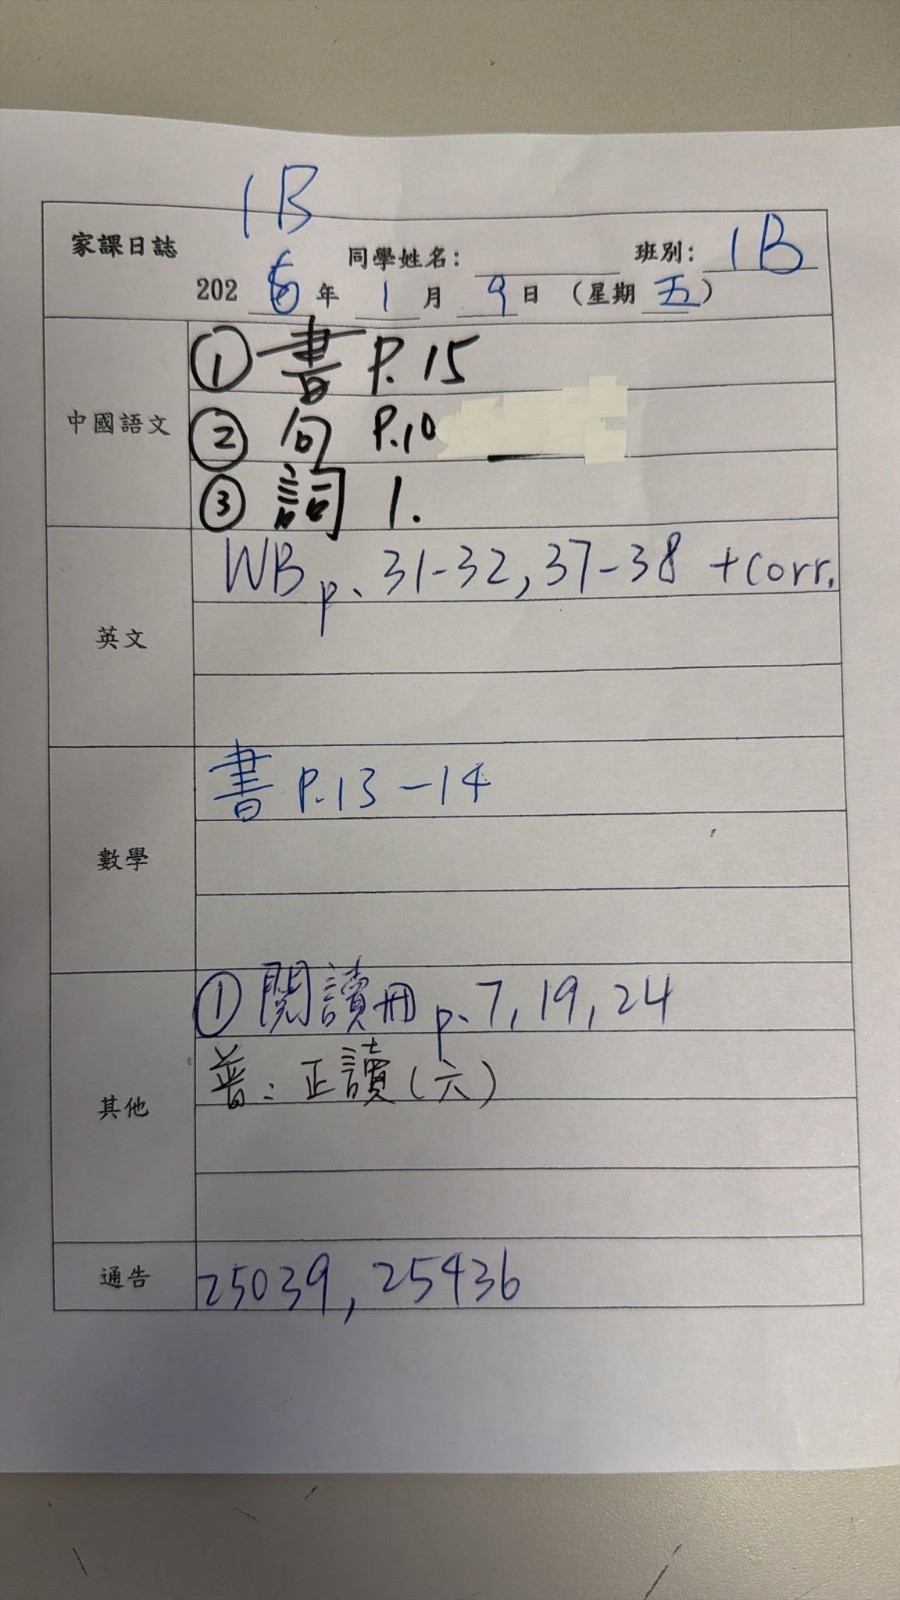 1B
家課日誌 同學姓名: 班別: 1B
2026年 1月 9日 (星期五)
中國語文
① 書 P.15
② 句 P.10
③ 詞 1.
英文
WB p. 31-32, 37-38 +corr.
數學
書 P.13-14
其他
① 閱讀冊 p.7, 19, 24
普: 正讀(六)
通告
25039, 25436